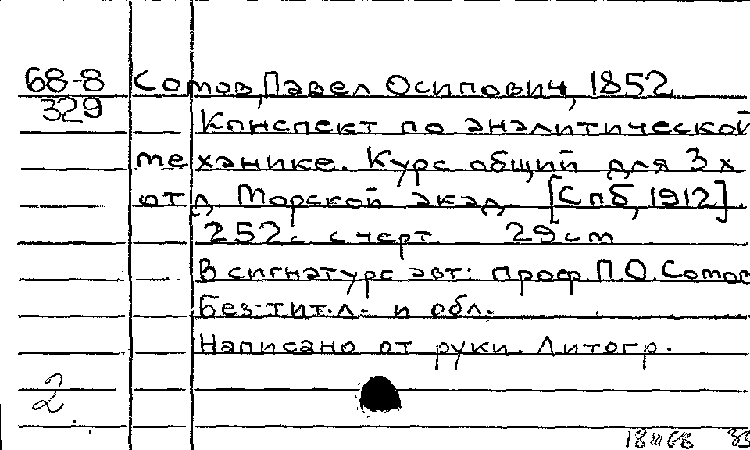 68-8 Сомов, Павел Осипович, 1852
329
Конспект по аналитической
механике. Курс общий для 3х
отд Морской акад. [Спб, 1912]
252с. с черт. 29см
В сигнатуре авт: проф П.О. Сомов
Без тит.л. и обл.
Написано от руки. Литогр.
2